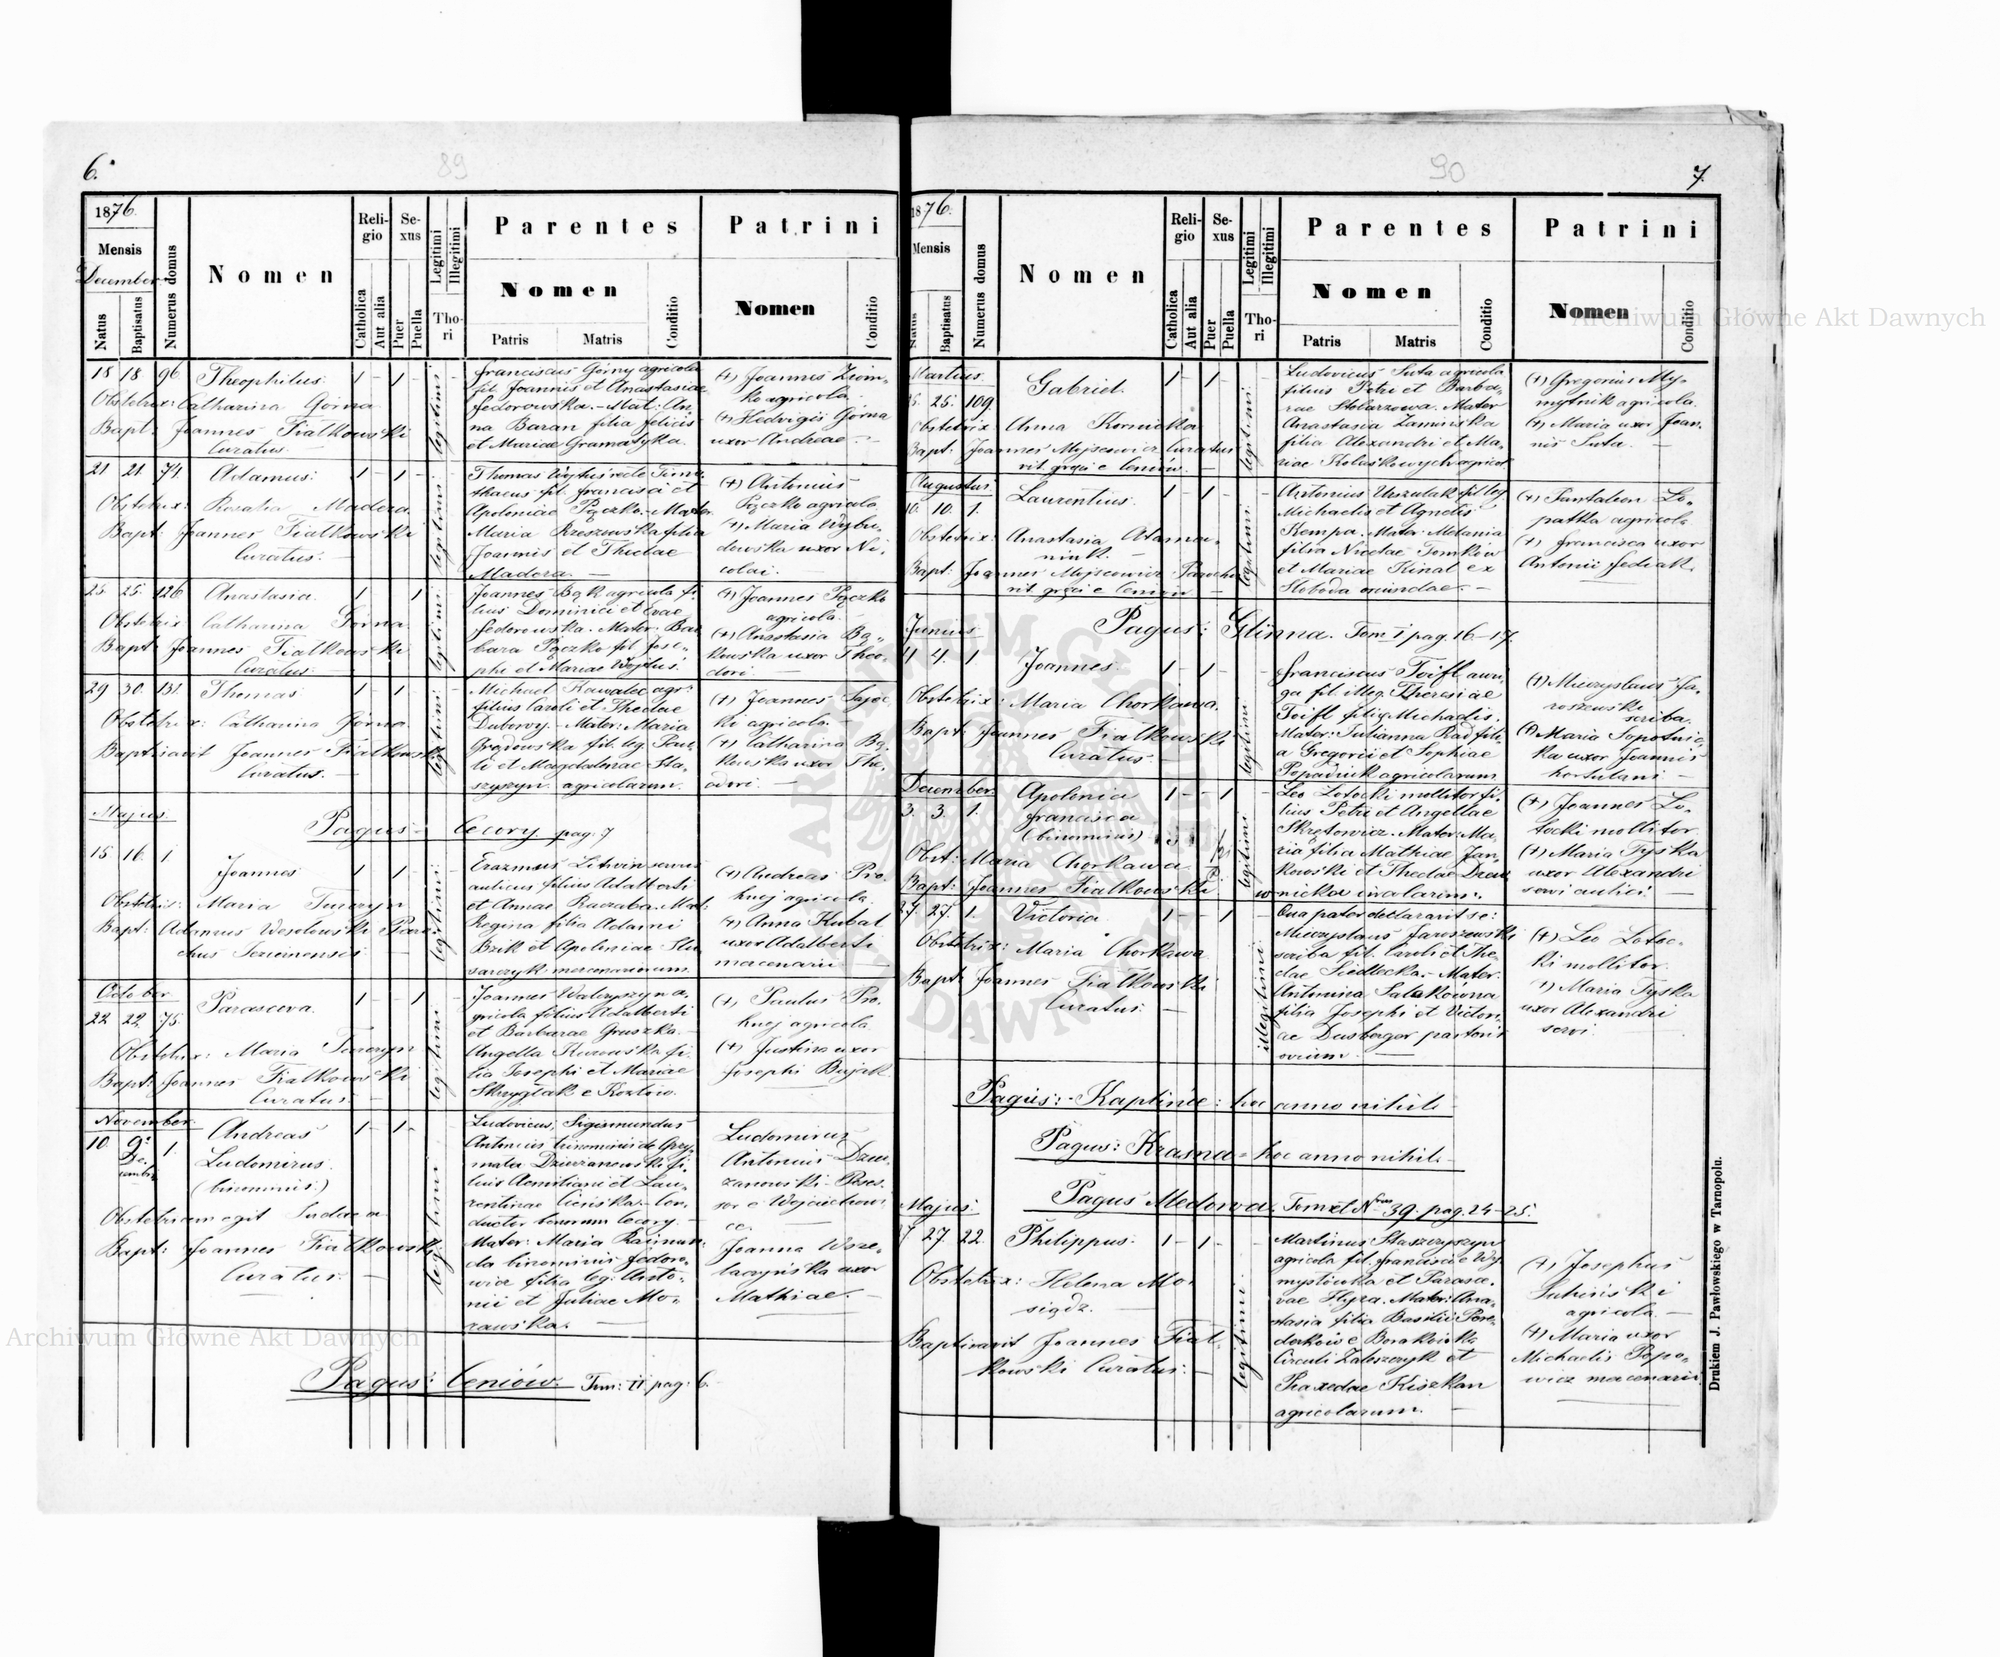 6.
89
1876.
Mensis
December
Natus
Baptisatus
Numerus domus
Nomen
Religio
Catholica
Aut alia
Sexus
Puer
Puella
Legitimi
Illegitimi
Thori
Parentes
Nomen
Patris
Matris
Conditio
Patrini
Nomen
Conditio
18 18. 96. Theophilus. 1 - 1 -
Obstetrix: Catharina Górna
Bapt: Joannes Fialkowski
Curatus.
legitimi
Franciscus Górny agricola
fil. Joannis et Anastasiae
Fedorowska. - Mat: An-
na Baran filia Felicis
et Mariae Gramatyka.
(+) Joannes Ziom-
ko agricola.
(+) Hedvigis Górna
uxor Andreae -
21 21. 74. Adamus. 1 - 1 -
Obstetrix: Rosalia Madera
Bapt: Joannes Fialkowski
Curatus. -
legitimi
Thomas
thaeus fil. Francisci et
Apoloniae Pączko. - Mater
Maria Rzeszowska filia
Joannis et Theclae
Madera. -
(+) Antonius
Pączko agricola
(+) Maria Wybu-
dowska uxor Ni-
colai. -
25. 25. 126. Anastasia. 1 1
Obstetrix: Catharina Górna.
Bapt: Joannes Fialkowski
Curatus. -
legitimi
Joannes Bąk agricola fi
lius Dominici et Evae
Fedorowska. Mater: Bar
bara Pączko fil. Jose-
phi et Mariae Wojtus.
(+) Joannes Pączko
agricola.
(+) Anastasia Bą-
kowska uxor Theo-
dori. -
29 30. 131. Thomas 1 - 1 -
Obstetrix: Catharina Górna.
Baptisavit Joannes Fialkowski
Curatus. -
legitimi
Michael Kawalec agr.
filius Caroli et Theclae
Mater: Maria
fil. leg. Pau-
li et Magdalenae Sta-
szyszyn. agricolarum.
(+) Joannes
ki agricola. -
(+) Catharina Bą-
kowska uxor The-
odori. -
Majus.
Pagus - Cecory. pag. 7
15. 16. 1. Joannes 1 - 1 -
Obstetrix: Maria Turczyn
Bapt: Adamus Wesołowski Paro-
chus
legitimi
Erazmus Litwin servus
aulicus filius Adalberti
et Annae Mat:
Regina filia Adami
Bzik et Apoloniae
mercenariorum.
(+) Andreas Pro-
hnej agricola.
(+) Anna Kubat
uxor Adalberti
mercenarii -
October
22 22. 75. Parasceva. 1 - 1
Obstetrix: Maria Turczyn
Bapt: Joannes Fialkowski
Curatus. -
legitimi
Joannes Walczyszyn a-
gricola filius Adalberti
et Barbarae Gruszka. -
Angella Kurowska fi-
lia Josephi et Mariae
e Kozłów.
(+) Paulus Pro-
hnej agricola
(+) Justina uxor
Josephi Bujak
November
10. 9. De-
cembris 1. Andreas 1 - 1 -
Ludomirus.
(binominis.)
Obstetricem egit Judaea
Bapt: Joannes Fialkowski
Curatus. -
legitimi
Ludovicus, Sigismundus
Antonius trinominis de Grzy-
mala Dziewanowski fi-
lius Aemiliani et Lau-
rentinae Cieńska - Con-
ductor bonorum Cecory. -
Mater: Maria Raimun-
da binominis Fedoro-
wicz filia leg. Anto-
nii et Juliae Mo-
rawska. -
Ludomirus
Antonius Dzie-
wanowski - Poses-
sor e Wojciechow-
ce.
Joanna Wsze-
laczyńska uxor
Mathiae. -
Pagus: Ceniów. Tom: II pag: 6.
90
7.
1876.
Mensis
Natus
Baptisatus
Numerus domus
Nomen
Religio
Catholica
Aut alia
Sexus
Puer
Puella
Legitimi
Illegitimi
Thori
Parentes
Nomen
Patris
Matris
Conditio
Patrini
Nomen
Conditio
Martius.
25. 25. 109. Gabriel. 1 - 1 -
Obstetrix: Anna Kornicka
Bapt: Joannes Mojsewicz Curatus
rit. grci e Ceniów. -
legitimi
Ludovicus Suta agricola
filius Petri et Barba-
rae Stolarzowa. Mater
Anastasia Zamińska
filia Alexandri et Ma-
riae agricol.
(+) Gregorius My-
mytnik agricola.
(+) Maria uxor Joan-
nis Suta. -
Augustus.
10. 10. 1. Laurentius. 1 - 1 -
Obstetrix: Anastasia Atama-
niuk. -
Bapt: Joannes Mojseowicz Parochus
rit. grci e Ceniów -
legitimi
Antonius Urszulak fil. leg.
Michaelis et Agnetis
Kempa. Mater: Melania
filia Nicolae Tomków
et Mariae Kinal ex
Słoboda oriundae. -
(+) Pantalion Lo-
patka agricola
(+) Francisca uxor
Antonii Fediak.
Pagus: Glinna. Tom I pag. 16-17.
Junius
4 4. 1 Joannes. 1 - 1 -
Obstetrix: Maria Chorkawa.
Bapt: Joannes Fialkowski
Curatus. -
legitimi
Franciscus Toifl auri-
ga fil. illeg. Theresiae
Toifl filia Michaelis.
Mater: Julianna Rad fili-
a Gregorii et Sophiae
Popadiuk agricolarum
(+) Mieczyslaus Ja-
roszewski
scriba.
(+) Maria Sopotnic-
ka uxor Joannis
hortulani -
December.
3. 3. 1. Apolonia 1 - - 1
Francisca
(binominis)
Obst: Maria Chorkawa
Bapt: Joannes Fialkowski
legitimi
Leo Łotocki mollitor fi-
lius Petri et Angellae
Skrętowicz. Mater: Ma-
ria filia Mathiae Jan-
kowski et Theclae Drew
wnickie
(+) Joannes Ło-
tocki mollitor.
(+) Maria Tyska
uxor Alexandri
servi aulici. -
27. 27. 1. Victoria 1 - - 1
Obstetrix: Maria Chorkawa
Bapt: Joannes Fialkowski
Curatus. -
illegitimi
Qua pater declaravit se:
Mieczyslaus Jaroszewski
scriba fil. Caroli et The-
clae Siedlecka. - Mater:
Antonina Salakówna
filia Josephi et Victori-
ae Dusberger pastoris
ovium. -
(+) Leo Łotoc-
ki mollitor.
(+) Maria Tyska
uxor Alexandri
servi.
Pagus: - Kaplińce: hoc anno nihil. -
Pagus: Krasna - hoc anno nihil. -
Majus.
Pagus Medowa. Tom et Nrus 39. pag. 24-25.
27 27. 22. Philippus. 1 - 1 -
Obstetrix: Helena Mo-
siądz. -
Baptisavit Joannes Fial-
kowski Curatus. -
legitimi
Martinus Staszczyszyn
agricola fil. Francisci e Wy-
mysłówka et Parasce-
vae Hyra. Mater: Ana-
stasia filia Basilii Pere-
derków e Borakówka
Circuli Zaleszczyk et
Praxedae Kiszkan
agricolarum. -
(+) Josephus
Łubiński
agricola. -
(+) Maria uxor
Michaelis Popo-
wicz mercenarii
Drukiem J. Pawłowskiego w Tarnopolu.
Archiwum Główne Akt Dawnych
Archiwum Główne Akt Dawnych